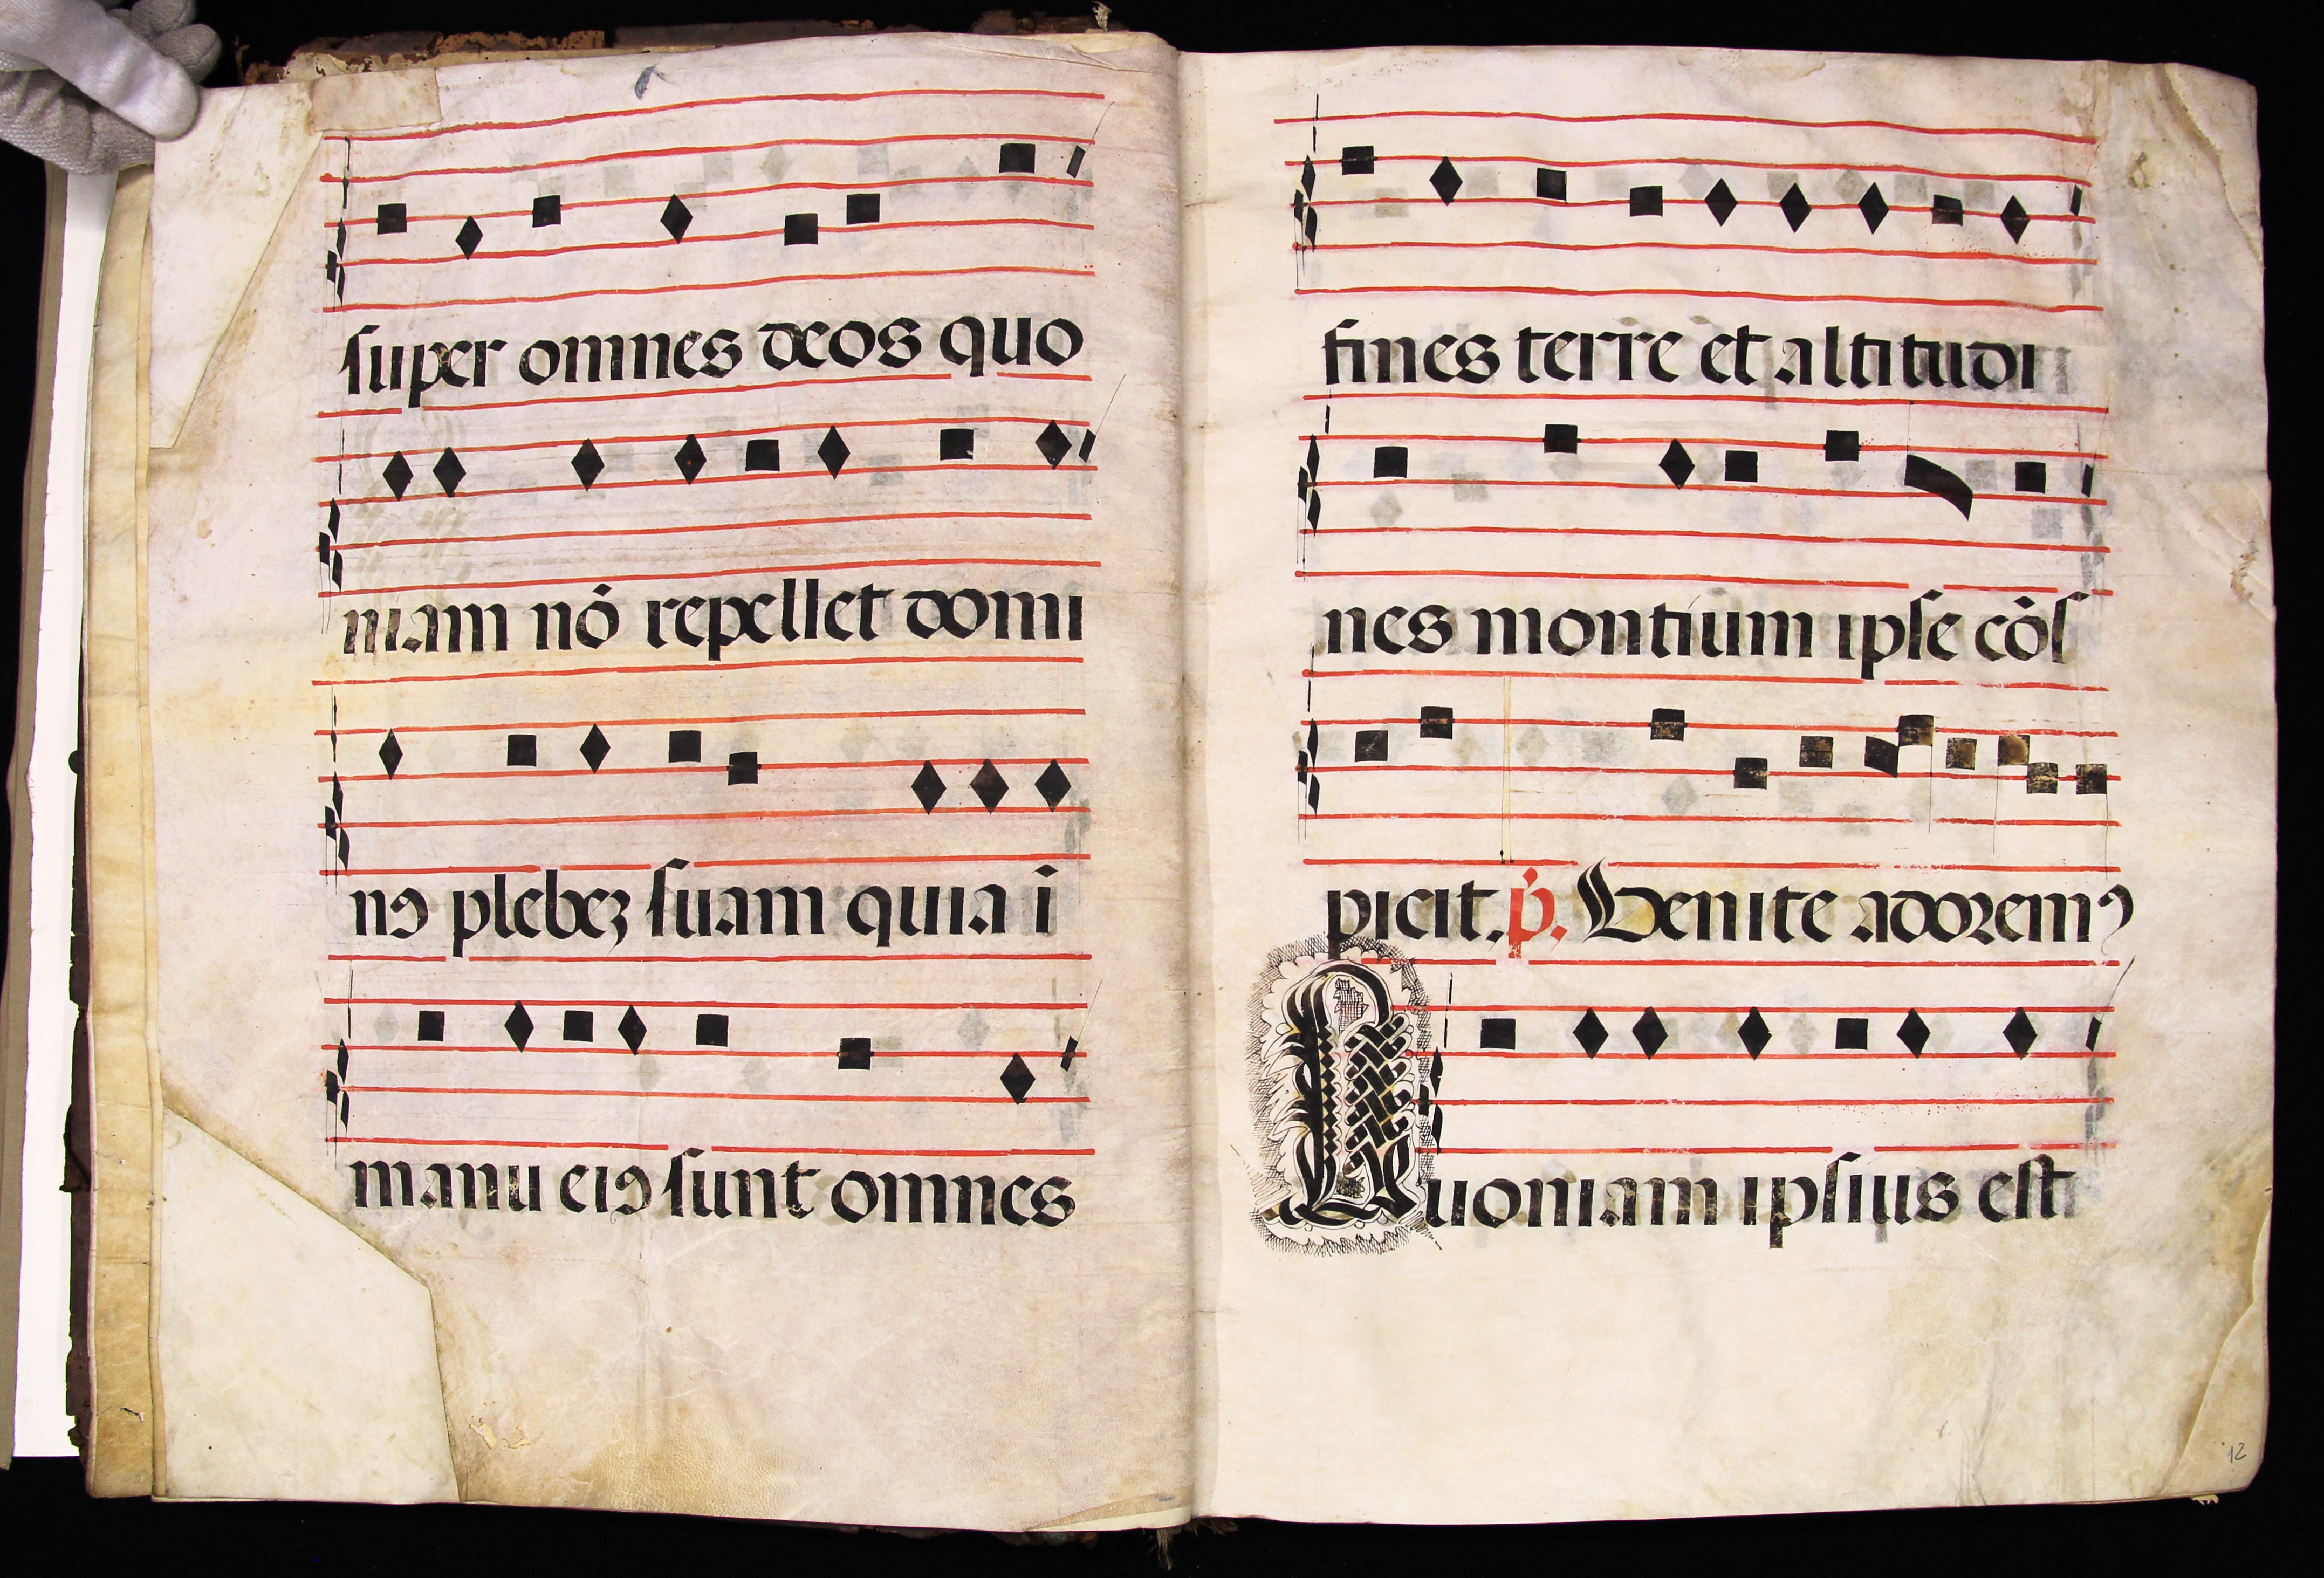 super omnes deos quo
niam nō repellet domi
nꝰ plebeꝫ suam quia ī
manu eiꝰ sunt omnes
fines terre et altitudi
nes montium ipse cōs
picit. p̄. Venite adoremꝰ
Quoniam ipsius est
12